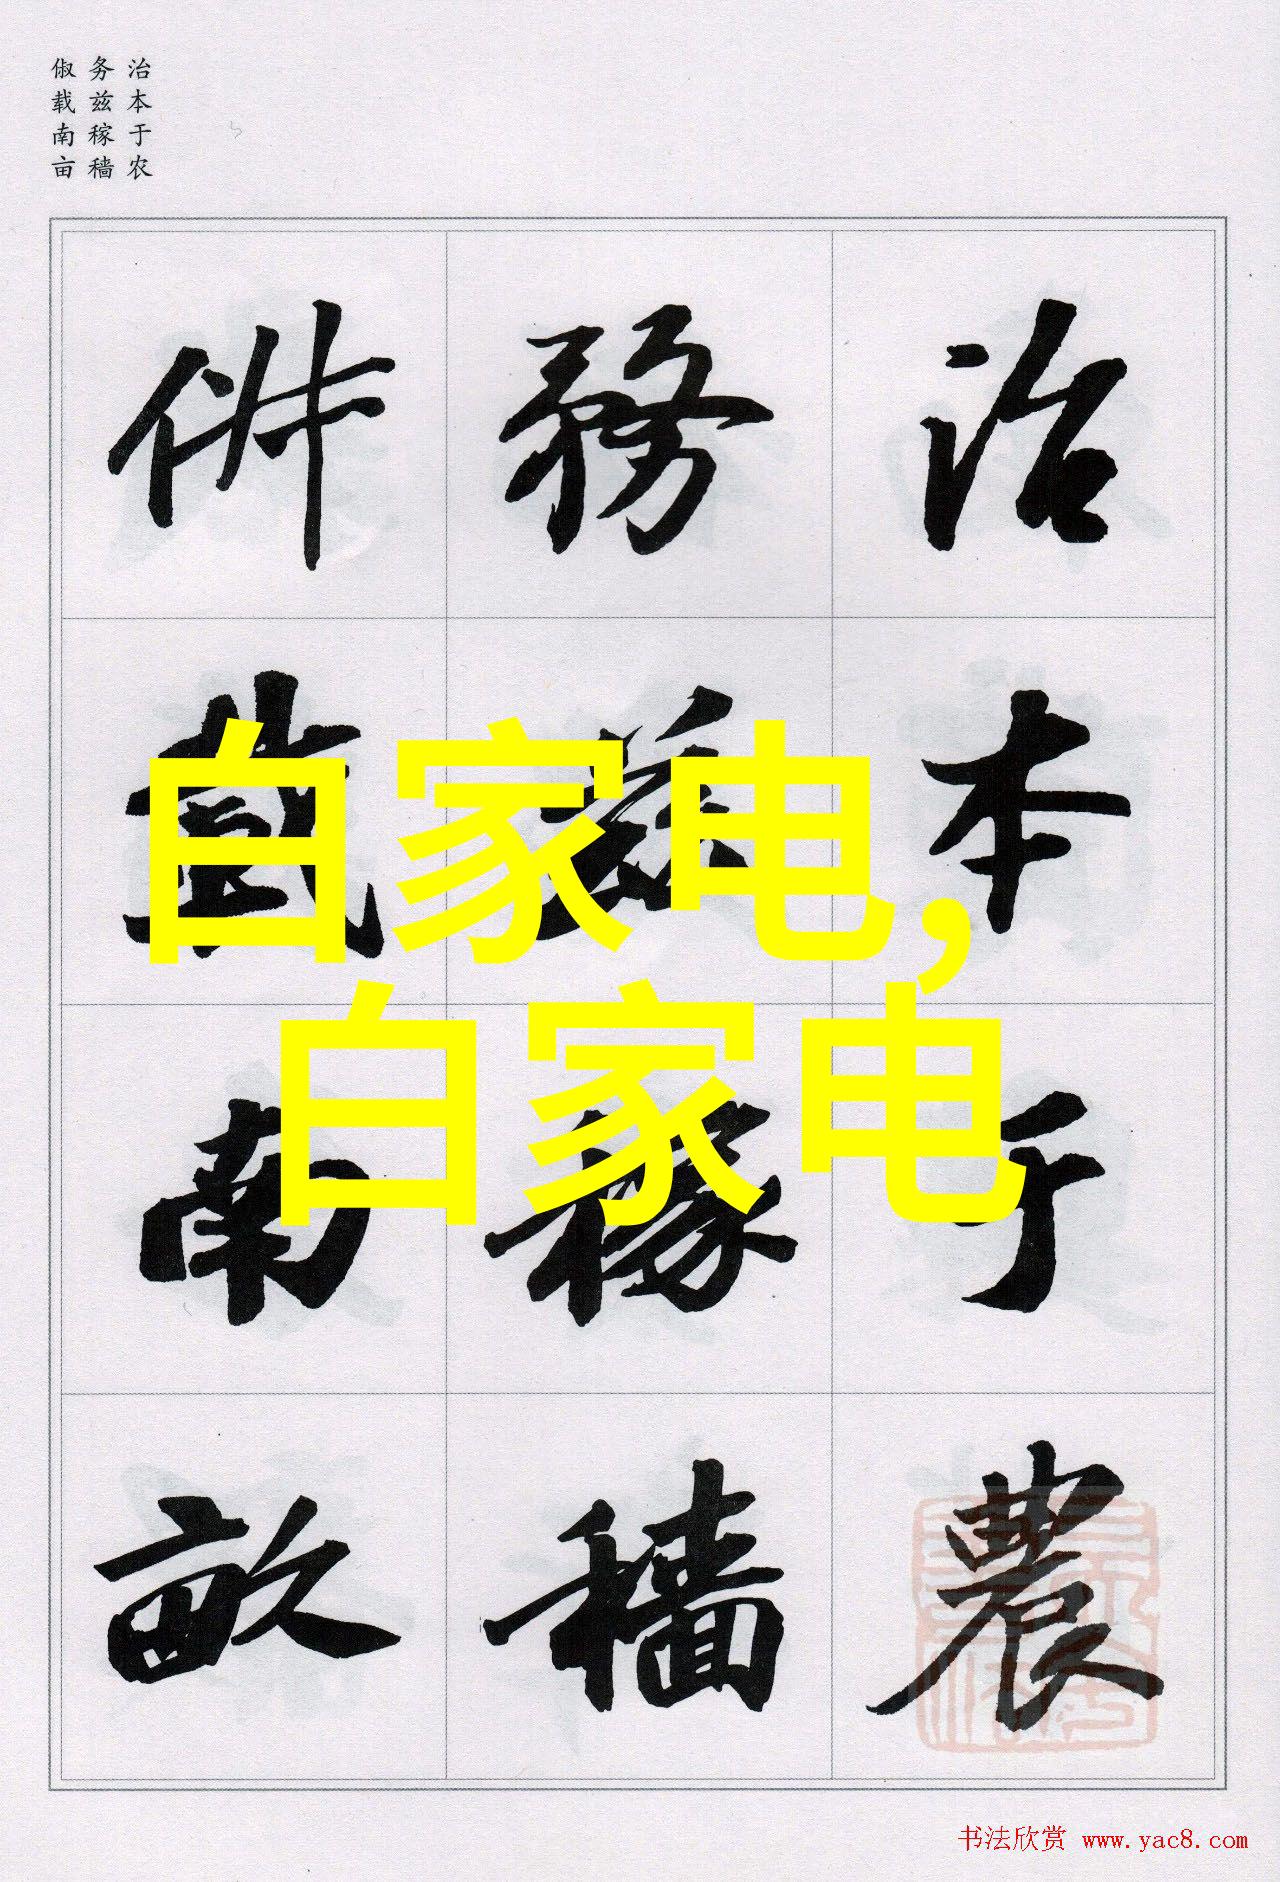 治本于农
务兹稼穑
俶载南亩
治本于農
務兹稼穡
俶載南畝
白家电,
白家电
书法欣赏 www.yac8.com